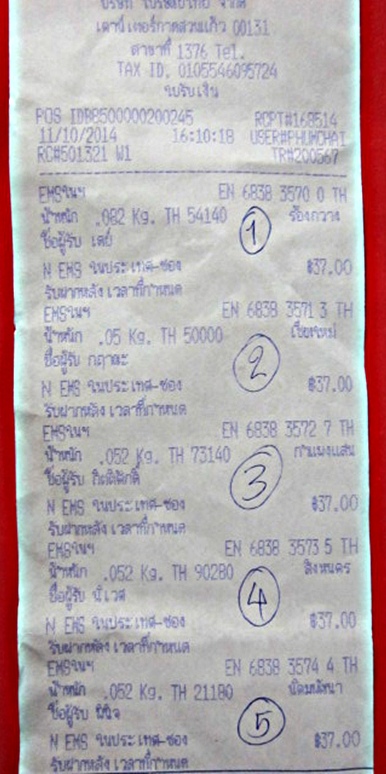 บริษัท ไปรษณีย์ไทย จำกัด
เคาน์เตอร์กาดสวนแก้ว 00131
สาขาที่ 1376 Tel.
TAX ID. 0105546095724
ใบรับเงิน
POS ID#B500000200245 RCPT#168514
11/10/2014 16:10:18 USER#PHUKCHAI
RC#501321 W1 TR#200567
EMSในฯ EN 6838 3570 0 TH
น้ำหนัก .082 Kg. TH 54140 ร้องกวาง
ชื่อผู้รับ เลย์ 1
N EMS ในประเทศ-ซอง ฿37.00
รับฝากหลังเวลาที่กำหนด
EMSในฯ EN 6838 3571 3 TH
น้ำหนัก .05 Kg. TH 50000 เชียงใหม่
ชื่อผู้รับ กฤตตะ 2
N EMS ในประเทศ-ซอง ฿37.00
รับฝากหลังเวลาที่กำหนด
EMSในฯ EN 6838 3572 7 TH
น้ำหนัก .052 Kg. TH 73140 กำแพงแสน
ชื่อผู้รับ กิตติศักดิ์ 3
N EMS ในประเทศ-ซอง ฿37.00
รับฝากหลังเวลาที่กำหนด
EMSในฯ EN 6838 3573 5 TH
น้ำหนัก .052 Kg. TH 90280 สิงหนคร
ชื่อผู้รับ นิเวส 4
N EMS ในประเทศ-ซอง ฿37.00
รับฝากหลังเวลาที่กำหนด
EMSในฯ EN 6838 3574 4 TH
น้ำหนัก .052 Kg. TH 21180 นิคมพัฒนา
ชื่อผู้รับ พินิจ 5
N EMS ในประเทศ-ซอง ฿37.00
รับฝากหลังเวลาที่กำหนด